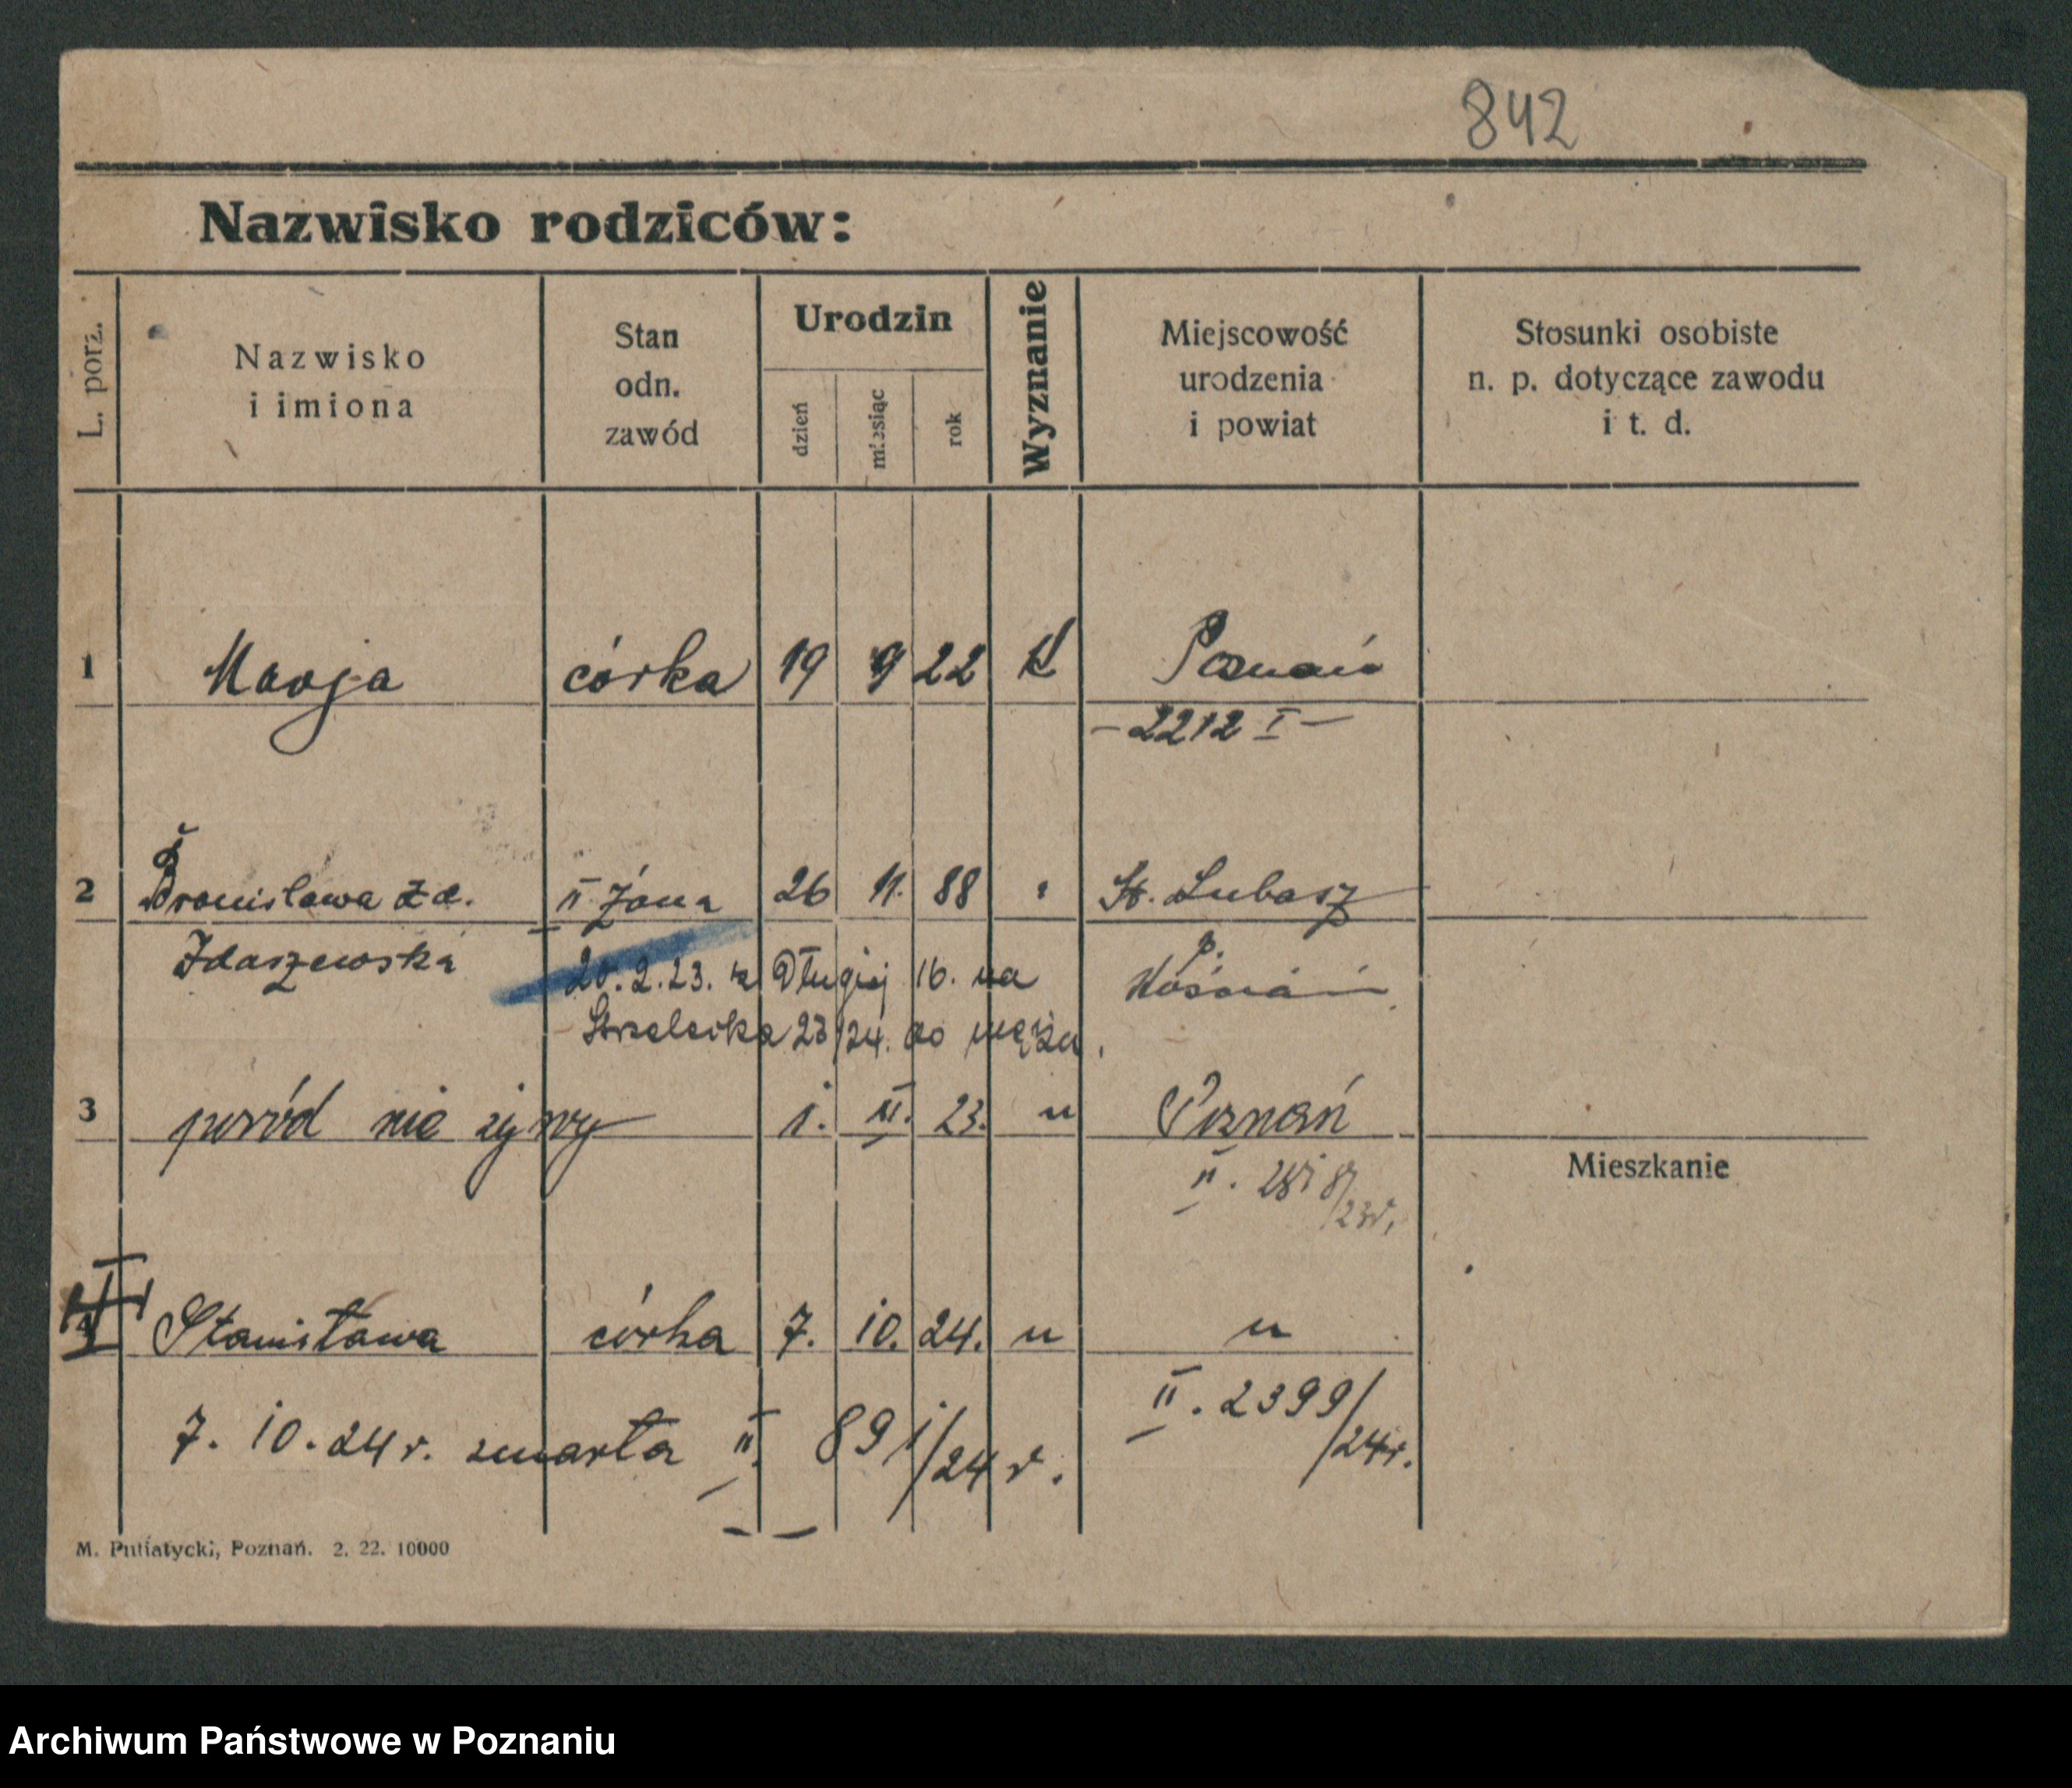 842
Nazwisko rodziców:
L. porz.
Nazwisko
i imiona
Stan
odn.
zawód
Urodzin
dzień
miesiąc
rok
Wyznanie
Miejscowość
urodzenia
i powiat
Stosunki osobiste
n. p. dotyczące zawodu
i t. d.
1 Marja córka 19 9 22 K Poznań
- 2212 I -
2 Bronisława z d. II żona 26 11. 88 " St. Lubosz
Zdaszewska p.
Kościan
20.2.23. z Długiej 16. na
Strzelecka 23/24. do męża.
3 poród nie żywy 1. III. 23. " Poznań
II.
/23r.
Mieszkanie
Stanisława córka 7. 10. 24. " "
II. 2399/24r.
7. 10. 24 r. zmarła II. 891/24 r.
M. Putiatycki, Poznań. 2. 22. 10000
Archiwum Państwowe w Poznaniu